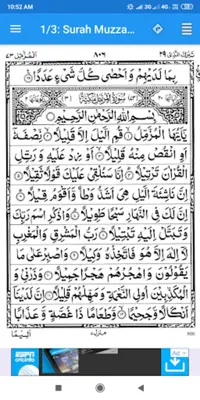 10:52 AM
1/3: Surah Muzza...
المزمل ٧٣ ٨٠٦ تبٰرك الذی ٢٩
بِمَا لَدَيْهِمْ وَاَحْصٰى كُلَّ شَىْءٍ عَدَدًا
سورة المزمل مكية
بِسْمِ اللهِ الرَّحْمٰنِ الرَّحِيْمِ
يٰۤاَيُّهَا الْمُزَّمِّلُ قُمِ الَّيْلَ اِلَّا قَلِيْلًا نِّصْفَهٗۤ
اَوِ انْقُصْ مِنْهُ قَلِيْلًا اَوْ زِدْ عَلَيْهِ وَرَتِّلِ
الْقُرْاٰنَ تَرْتِيْلًا اِنَّا سَنُلْقِىْ عَلَيْكَ قَوْلًا ثَقِيْلًا
اِنَّ نَاشِئَةَ الَّيْلِ هِىَ اَشَدُّ وَطْاً وَّاَقْوَمُ قِيْلًا
اِنَّ لَكَ فِى النَّهَارِ سَبْحًا طَوِيْلًا وَاذْكُرِ اسْمَ رَبِّكَ
وَتَبَتَّلْ اِلَيْهِ تَبْتِيْلًا رَبُّ الْمَشْرِقِ وَالْمَغْرِبِ
لَاۤ اِلٰهَ اِلَّا هُوَ فَاتَّخِذْهُ وَكِيْلًا وَاصْبِرْ عَلٰى مَا
يَقُوْلُوْنَ وَاهْجُرْهُمْ هَجْرًا جَمِيْلًا وَذَرْنِىْ وَ
الْمُكَذِّبِيْنَ اُولِى النَّعْمَةِ وَمَهِّلْهُمْ قَلِيْلًا اِنَّ لَدَيْنَاۤ
اَنْكَالًا وَّجَحِيْمًا وَّطَعَامًا ذَا غُصَّةٍ وَّعَذَابًا
اَلِيْمًا
منزل
Ad